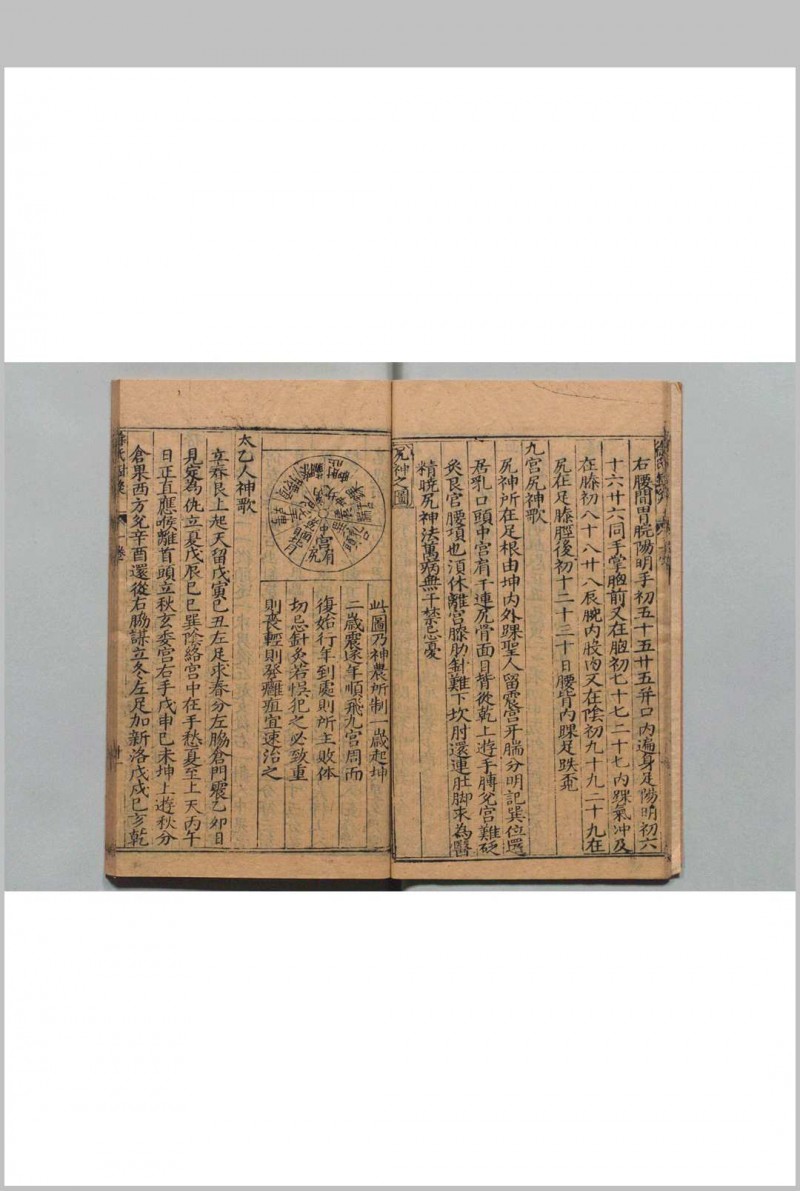 右腰間胃脘陽明手初五十五廿五幷口內遍身足陽明初六
十六廿六同手掌胸前又在胸初七十七二十七內踝氣冲及
在膝初八十八廿八辰腕內股內又在陰初九十九二十九在
尻在足膝脛後初十二十三十日腰背內踝足趺寃
九宮尻神歌
尻神所在足根由坤內外踝聖人留震宮牙腨分明記巽位還
居乳口頭中宮肩干連尻骨面目背從乾上遊手膊兌宮難砭
灸艮宮腰項也須休離宮膝肋針難下坎肘還連肚脚求為醫
精曉尻神法萬病無干禁忌憂
尻神之圖
中宮肩尻
此圖乃神農所制一歲起坤
二歲震逐年順飛九宮周而
復始行年到處則所主敗体
切忌針灸若悞犯之必致重
則喪輕則發癰疽宜速治之
太乙人神歌
立春艮上起天留戊寅己丑左足求春分左脇倉門震乙卯日
見定為仇立夏戊辰己巳巽陰絡宮中在手愁夏至上天丙午
日正直應喉離首頭立秋玄委宮右手戊申己未坤上遊秋分
倉果西方兌辛酉還從右脇謀立冬左足加新洛戊戌己亥乾